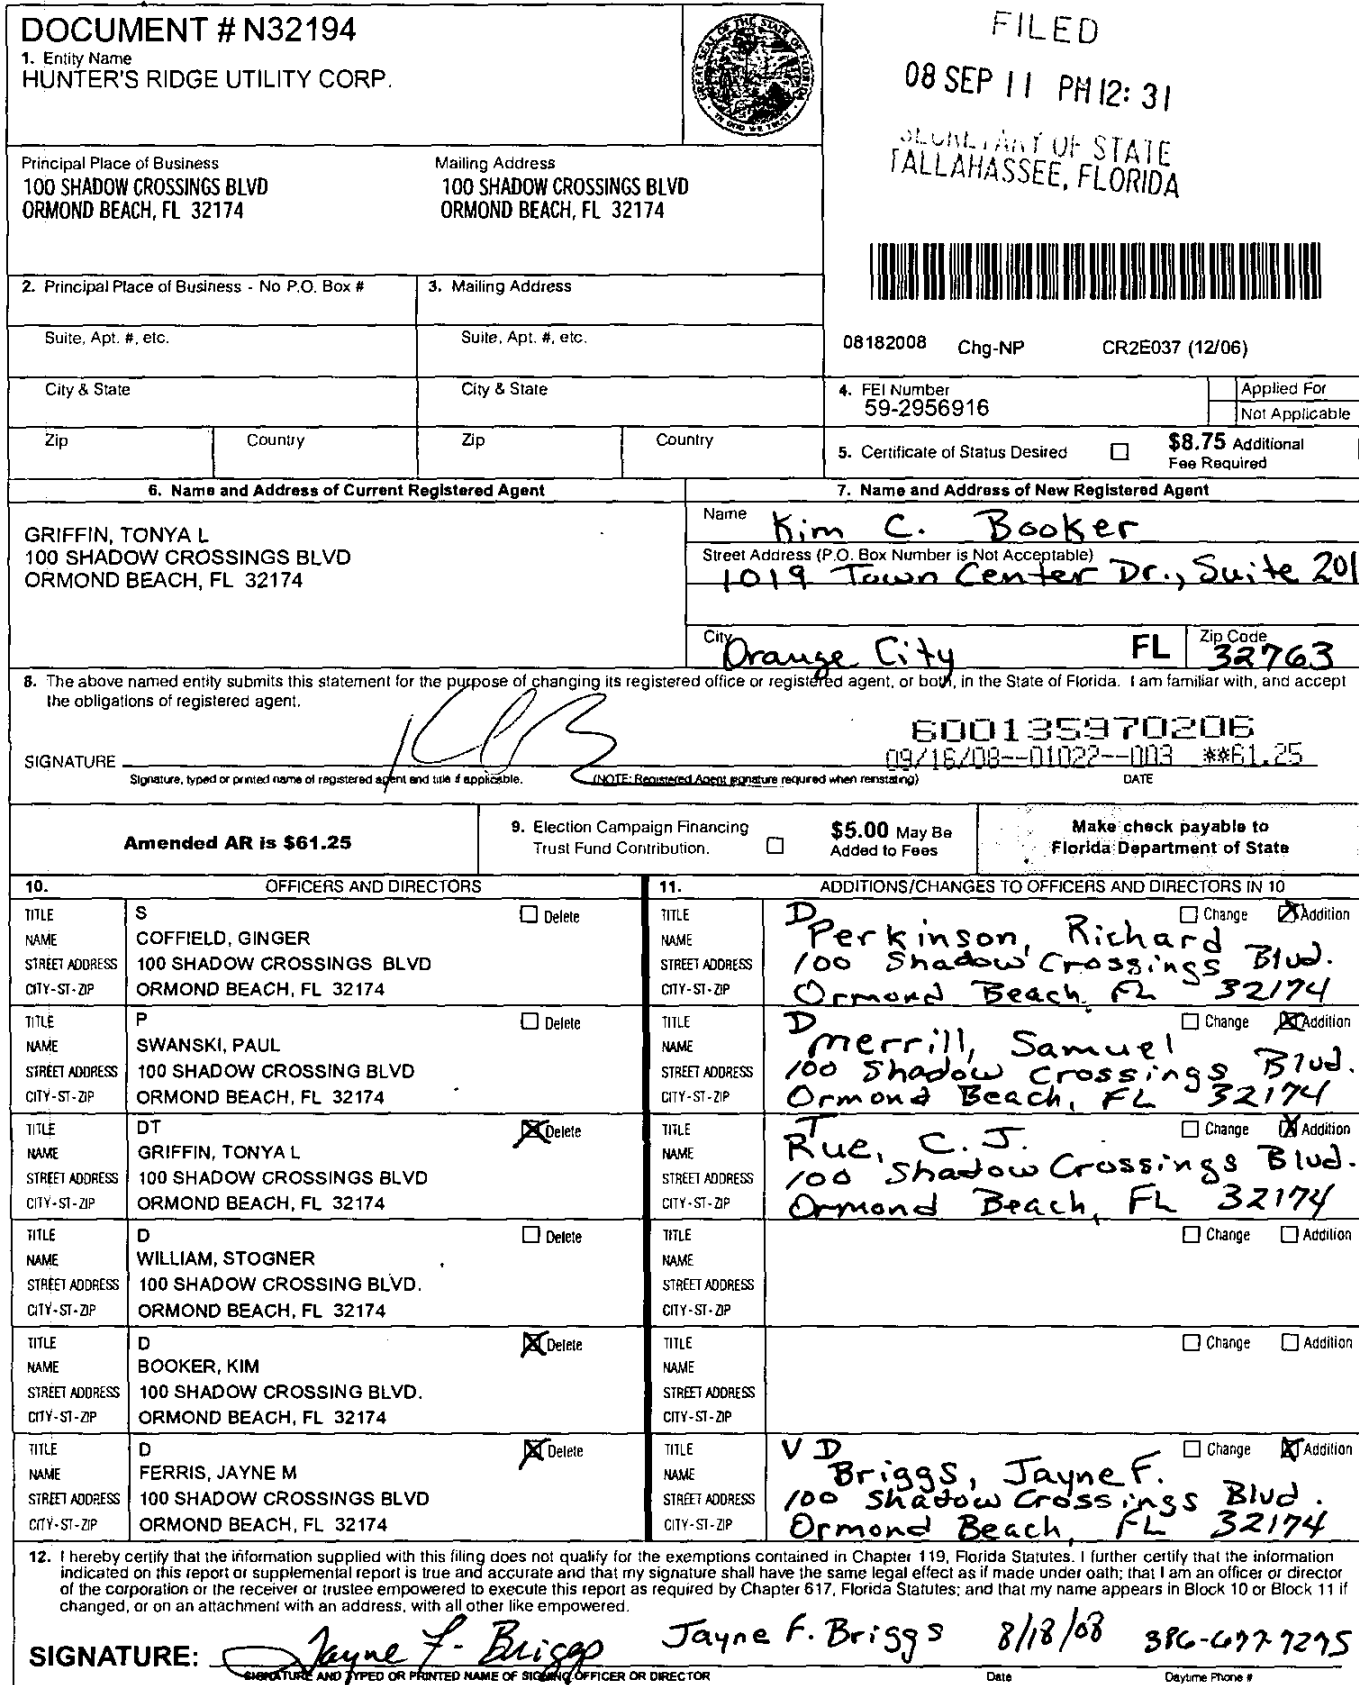 DOCUMENT # N32194
1. Entity Name
HUNTER'S RIDGE UTILITY CORP.
GREAT SEAL OF THE STATE OF FLORIDA
IN GOD WE TRUST
FILED
08 SEP 11 PM 12: 31
SECRETARY OF STATE
TALLAHASSEE, FLORIDA
Principal Place of Business
100 SHADOW CROSSINGS BLVD
ORMOND BEACH, FL 32174
Mailing Address
100 SHADOW CROSSINGS BLVD
ORMOND BEACH, FL 32174
2. Principal Place of Business - No P.O. Box #
3. Mailing Address
Suite, Apt. #, etc.
Suite, Apt. #, etc.
08182008 Chg-NP CR2E037 (12/06)
City & State
City & State
4. FEI Number
59-2956916
Applied For
Not Applicable
Zip
Country
Zip
Country
5. Certificate of Status Desired
$8.75 Additional
Fee Required
6. Name and Address of Current Registered Agent
GRIFFIN, TONYA L
100 SHADOW CROSSINGS BLVD
ORMOND BEACH, FL 32174
7. Name and Address of New Registered Agent
Name Kim C. Booker
Street Address (P.O. Box Number is Not Acceptable)
1019 Town Center Dr., Suite 201
City Orange City FL Zip Code 32763
8. The above named entity submits this statement for the purpose of changing its registered office or registered agent, or both, in the State of Florida. I am familiar with, and accept
the obligations of registered agent.
600135970206
09/16/08--01022--003 **61.25
SIGNATURE
Signature, typed or printed name of registered agent and title if applicable. (NOTE: Registered Agent signature required when reinstating) DATE
Amended AR is $61.25
9. Election Campaign Financing
Trust Fund Contribution.
$5.00 May Be
Added to Fees
Make check payable to
Florida Department of State
10. OFFICERS AND DIRECTORS
11. ADDITIONS/CHANGES TO OFFICERS AND DIRECTORS IN 10
TITLE S Delete
NAME COFFIELD, GINGER
STREET ADDRESS 100 SHADOW CROSSINGS BLVD
CITY-ST-ZIP ORMOND BEACH, FL 32174
TITLE D Change Addition
NAME Perkinson, Richard
STREET ADDRESS 100 Shadow Crossings Blvd.
CITY-ST-ZIP Ormond Beach FL 32174
TITLE P Delete
NAME SWANSKI, PAUL
STREET ADDRESS 100 SHADOW CROSSING BLVD
CITY-ST-ZIP ORMOND BEACH, FL 32174
TITLE D Change Addition
NAME Merrill, Samuel
STREET ADDRESS 100 Shadow Crossings Blvd.
CITY-ST-ZIP Ormond Beach, FL 32174
TITLE DT Delete
NAME GRIFFIN, TONYA L
STREET ADDRESS 100 SHADOW CROSSINGS BLVD
CITY-ST-ZIP ORMOND BEACH, FL 32174
TITLE T Change Addition
NAME Rue, C. J.
STREET ADDRESS 100 Shadow Crossings Blvd.
CITY-ST-ZIP Ormond Beach, FL 32174
TITLE D Delete
NAME WILLIAM, STOGNER
STREET ADDRESS 100 SHADOW CROSSING BLVD.
CITY-ST-ZIP ORMOND BEACH, FL 32174
TITLE Change Addition
NAME
STREET ADDRESS
CITY-ST-ZIP
TITLE D Delete
NAME BOOKER, KIM
STREET ADDRESS 100 SHADOW CROSSING BLVD.
CITY-ST-ZIP ORMOND BEACH, FL 32174
TITLE Change Addition
NAME
STREET ADDRESS
CITY-ST-ZIP
TITLE D Delete
NAME FERRIS, JAYNE M
STREET ADDRESS 100 SHADOW CROSSINGS BLVD
CITY-ST-ZIP ORMOND BEACH, FL 32174
TITLE V D Change Addition
NAME Briggs, Jayne F.
STREET ADDRESS 100 Shadow Crossings Blvd.
CITY-ST-ZIP Ormond Beach, FL 32174
12. I hereby certify that the information supplied with this filing does not qualify for the exemptions contained in Chapter 119, Florida Statutes. I further certify that the information
indicated on this report or supplemental report is true and accurate and that my signature shall have the same legal effect as if made under oath; that I am an officer or director
of the corporation or the receiver or trustee empowered to execute this report as required by Chapter 617, Florida Statutes; and that my name appears in Block 10 or Block 11 if
changed, or on an attachment with an address, with all other like empowered.
SIGNATURE: Jayne F. Briggs Jayne F. Briggs 8/18/08 386-677-7275
SIGNATURE AND TYPED OR PRINTED NAME OF SIGNING OFFICER OR DIRECTOR Date Daytime Phone #